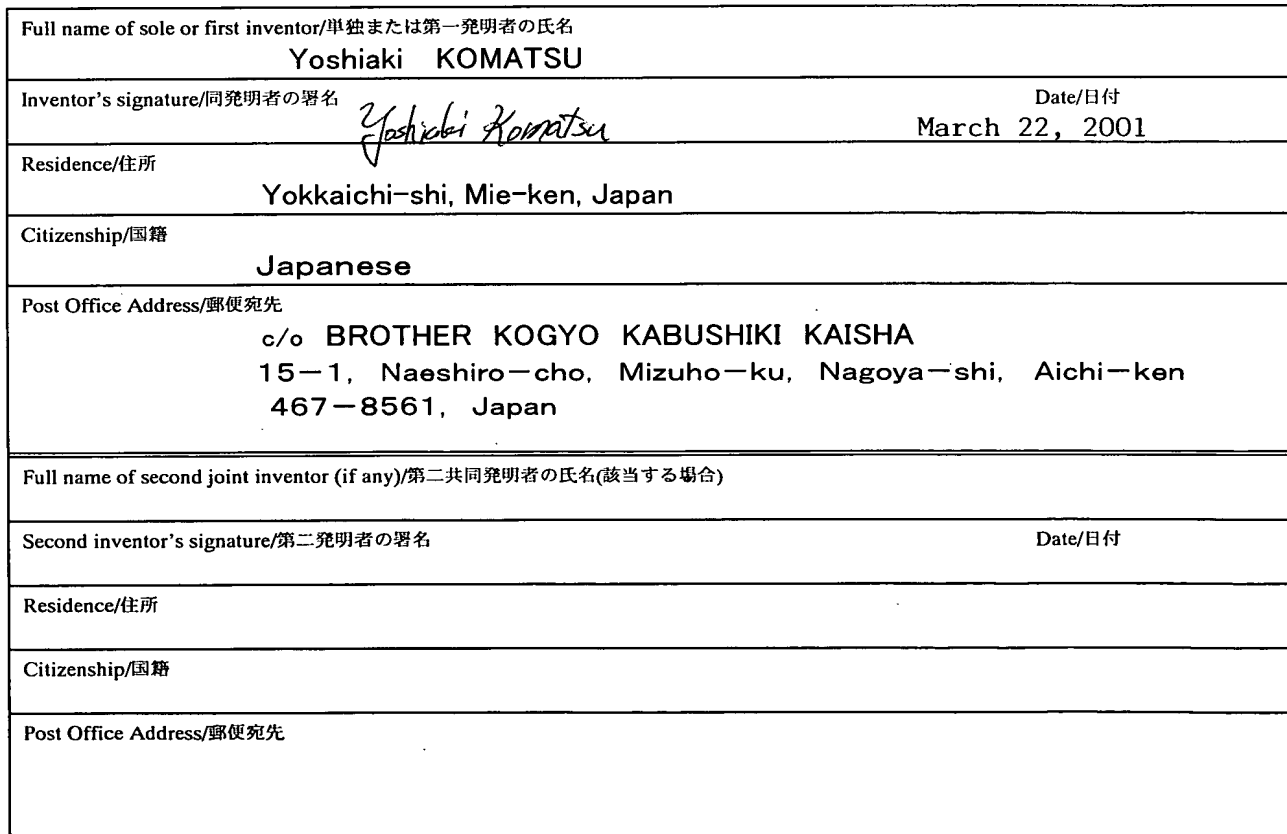 Full name of sole or first inventor/単独または第一発明者の氏名
Yoshiaki KOMATSU
Inventor's signature/同発明者の署名 Date/日付
Yoshiaki Komatsu March 22, 2001
Residence/住所
Yokkaichi-shi, Mie-ken, Japan
Citizenship/国籍
Japanese
Post Office Address/郵便宛先
c/o BROTHER KOGYO KABUSHIKI KAISHA
15-1, Naeshiro-cho, Mizuho-ku, Nagoya-shi, Aichi-ken
467-8561, Japan
Full name of second joint inventor (if any)/第二共同発明者の氏名(該当する場合)
Second inventor's signature/第二発明者の署名 Date/日付
Residence/住所
Citizenship/国籍
Post Office Address/郵便宛先